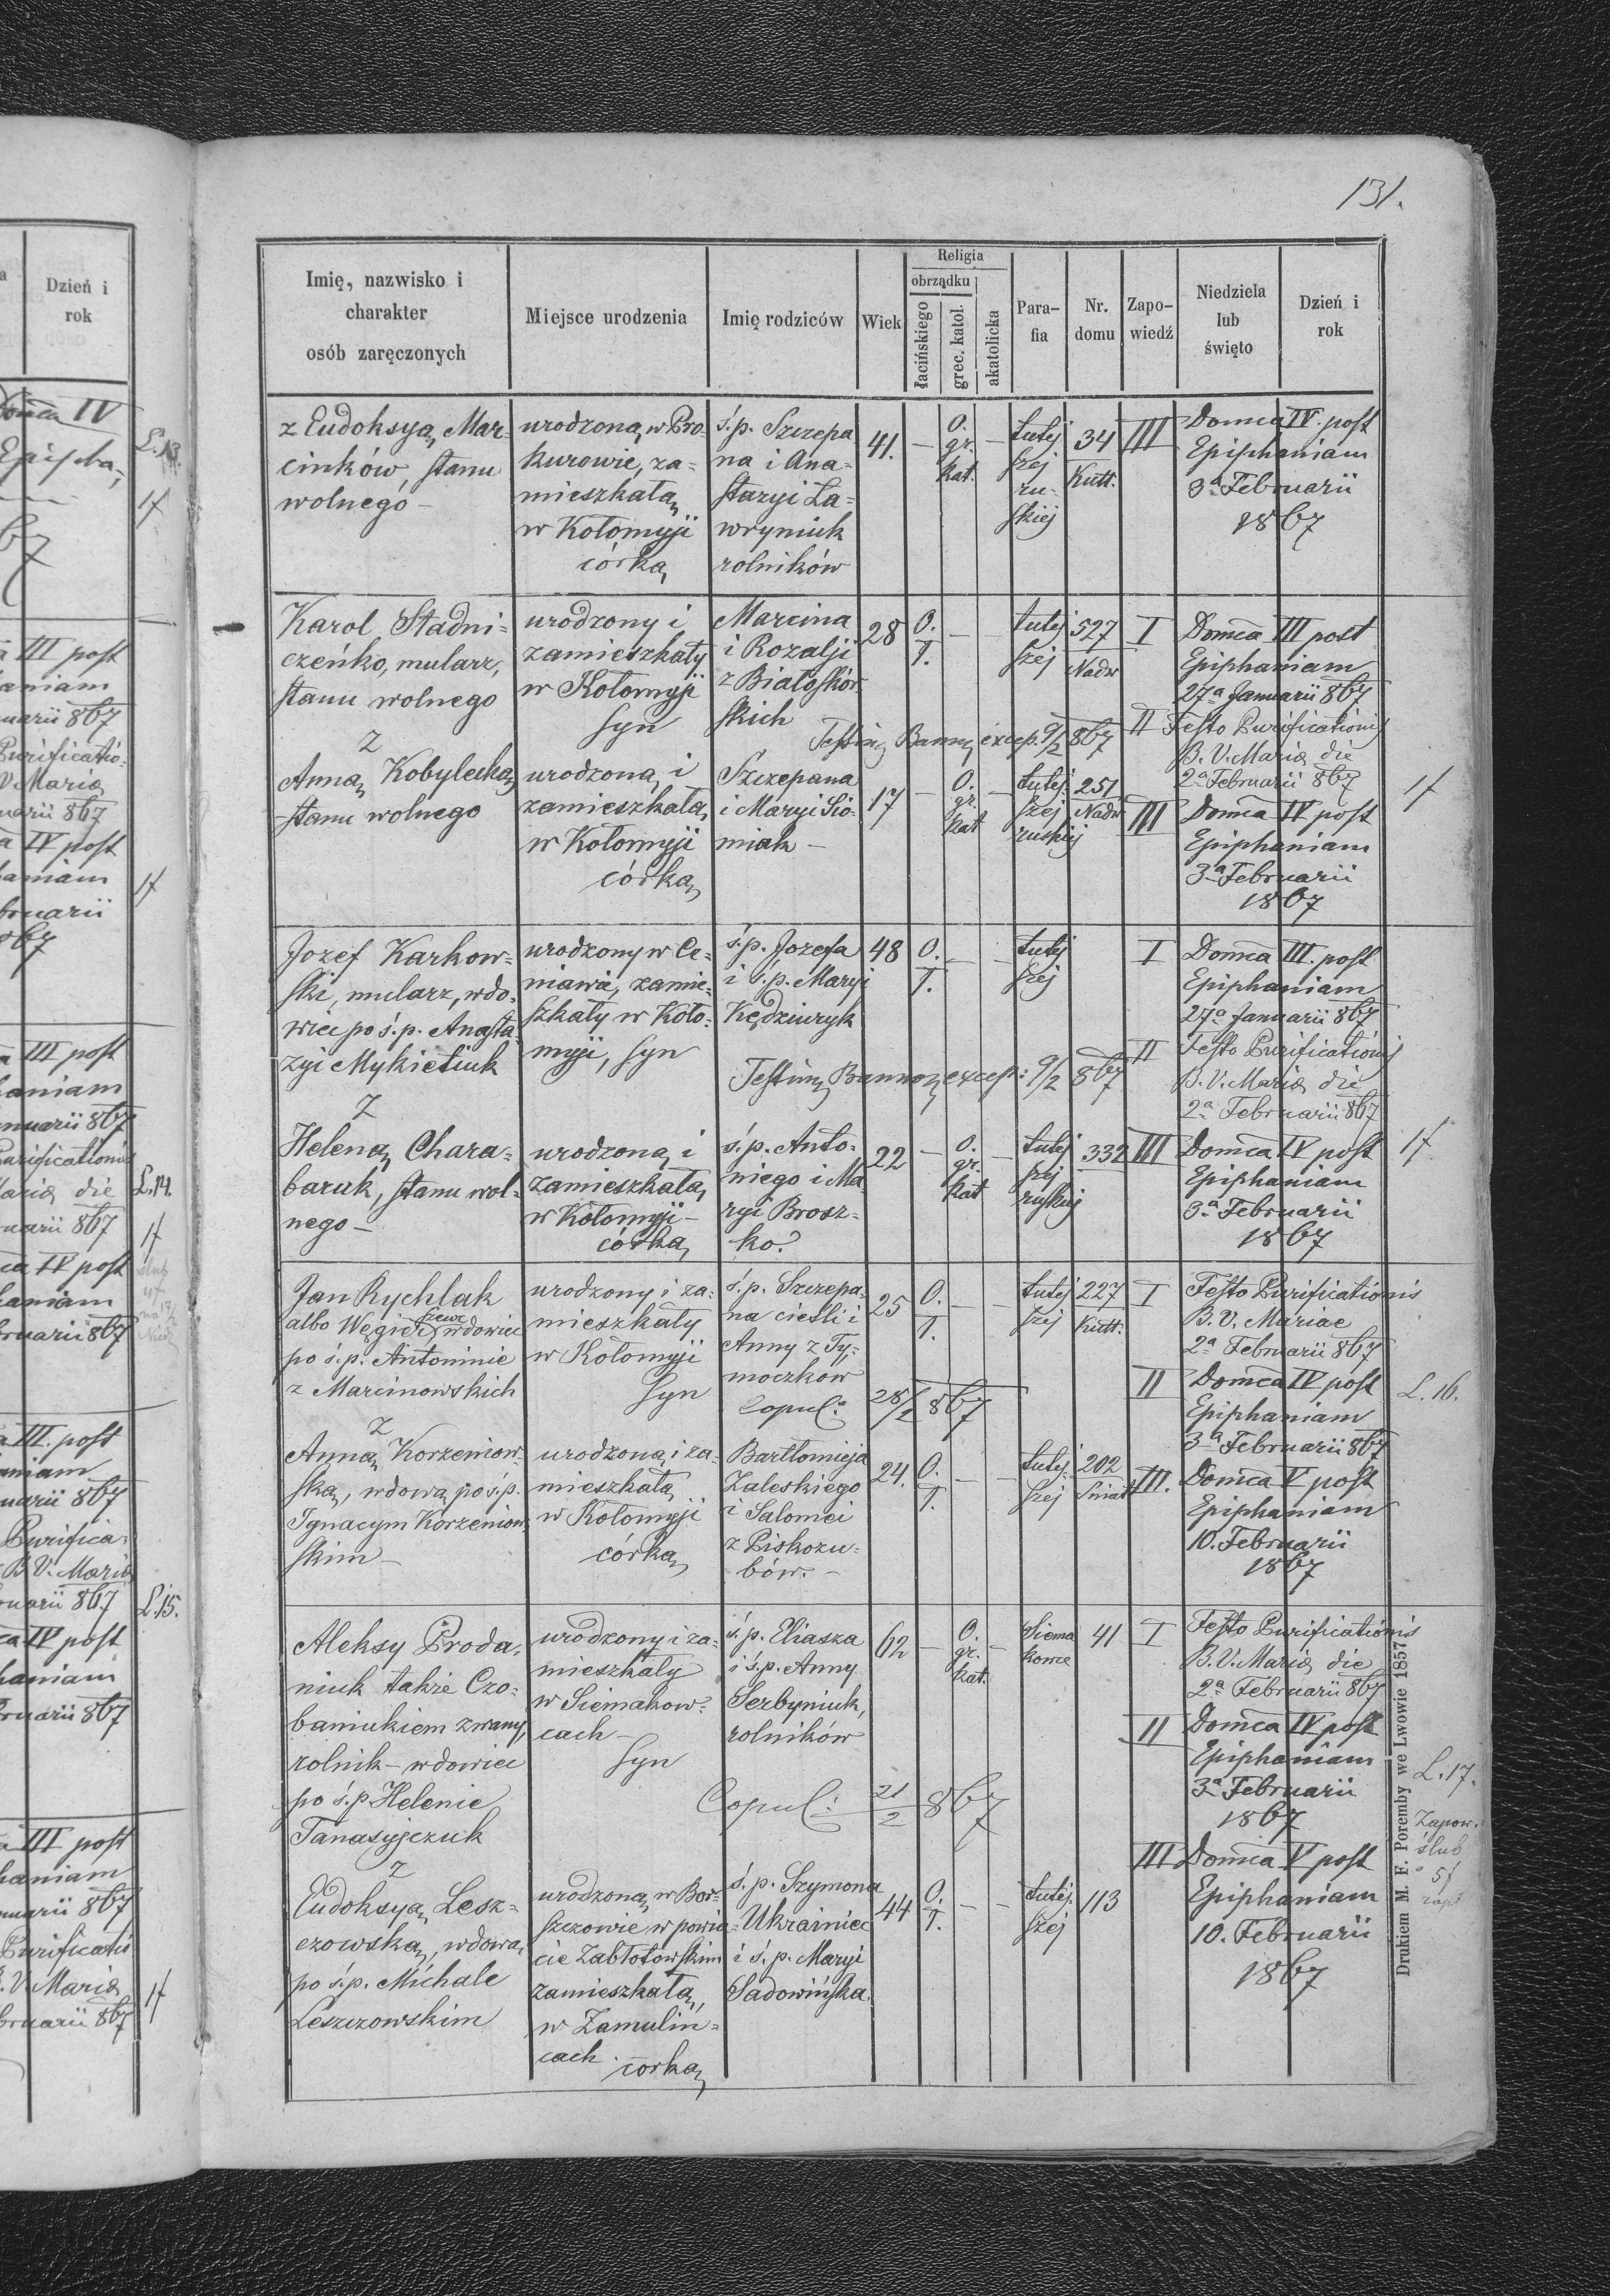 131.
Imię, nazwisko i charakter osób zaręczonych
Miejsce urodzenia
Imię rodziców
Wiek
Religia
obrządku
łacińskiego
grec. katol.
akatolicka
Para-fia
Nr. domu
Zapo-wiedź
Niedziela lub święto
Dzień i rok
z Eudoksyą Mar-
cinków, stanu
wolnego -
urodzoną w Pro-
kurowie, za-
mieszkałą
w Kołomyji
córką
ś.p. Szczepa
na i Ana-
stazyi Ła-
wryniuk
rolników
41.
O.
gr.
kat.
tutej
szej
ru-
skiej
34
Kutt.
III
Domca IV. post
Epiphaniam
3a Februarii
1867
Karol Stadni-
czeńko, mularz,
stanu wolnego
urodzony i
zamieszkały
w Kołomyji
syn
Marcina
i Rozalji
z Białoskór
skich
28
O.
ł.
tutej
szej
527
Nadw
I
Domca III post
Epiphaniam
27a Januarii 867
Testim Bannor excep. 9/2 867
II Festo Purificationis
B. V. Maria die
2a Februarii 867
z
Anną Kobylecką
stanu wolnego
urodzoną i
zamieszkałą
w Kołomyji
córką
Szczepana
i Maryi Sio-
miak -
17
O.
gr.
kat
tutej
szej
ruskiej
251
Nadw
III
Domca IV post
Epiphaniam
3a Februarii
1867
1f
Jozef Karkow-
ski, mularz, wdo-
wiec po ś.p. Anasta
zyi Mykietiuk
urodzony w Ce-
niawie, zamie-
szkały w Koło-
myji, syn
ś.p. Jozefa
i ś.p. Maryi
Kędziuryk
48
O.
ł.
tutej
szej
I
Domca III. post
Epiphaniam
27a Januarii 867
Testim Bannor excep: 9/2 867
II
Festo Purificationis
B. V. Maria die
2a Februarii 867
z
Heleną Chara-
baruk, stanu wol-
nego -
urodzoną i
zamieszkałą
w Kołomyji -
córką
ś.p. Anto-
niego i Ma
ryi Brosz-
ko.
22
O.
gr.
kat
tutej
szej
ruskiej
332
III
Domca IV post
Epiphaniam
3a Februarii
1867
1f
Jan Rychlak
albo Węgier szewc wdowiec
po ś.p. Antoninie
z Marcinowskich
urodzony i za-
mieszkały
w Kołomyji
syn
ś.p. Szczepa-
na cieśli i
Anny z Ty-
moczków
25
O.
ł.
tutej
szej
227
Kutt.
I
Festo Purificationis
B. V. Mariae
2a Februarii 867
Copul: 28/2 867
II
Domca IV post
Epiphaniam
3a Februarii 867
L. 16.
z
Anną Korzeniow-
ską, wdową po ś.p.
Ignacym Korzeniow-
skim -
urodzoną i za-
mieszkałą
w Kołomyji
córką
Bartłomieja
Zaleskiego
i Salomei
z Piskozu-
bów. -
24.
O.
ł.
tutej.
szej
202
Sniat
III.
Domca V post
Epiphaniam
10. Februarii
1867
Aleksy Proda-
niuk także Czo-
baniukiem zwany,
rolnik - wdowiec
po ś.p. Helenie
Tanasyjczuk
urodzony i za-
mieszkały
w Siemakow-
cach -
syn
ś.p. Eliasza
i ś.p. Anny
Serbyniuk,
rolników
62
O.
gr.
kat.
Siema
kowce
41
I
Festo Purificationis
B. V. Maria die
2a Februarii 867
II
Domca IV post
Epiphaniam
3a Februarii
1867
Copul: 21/2 867
L. 17.
Zapow.
ślub
5f
z
Eudoksyą Lesz-
czowską, wdową
po ś.p. Michale
Leszczowskim
urodzoną w Bor-
szczowie w powie-
cie Zabłotowskim
zamieszkałą,
w Zamulin-
cach. córką
ś.p. Szymona
Ukrainiec
i ś.p. Maryi
Sadowińska.
44
O.
ł.
tutej.
szej
113
III
Domca V post
Epiphaniam
10. Februarii
1867
Drukiem M. F. Poremby we Lwowie 1857
Dzień i
rok
L. 13.
1f
1f
L. 14.
1f
L. 15.
1f